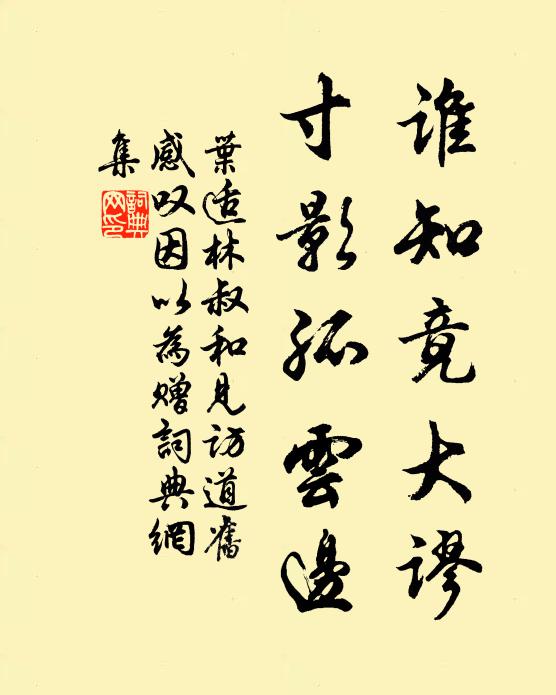 誰知竟大謬
寸影孤雲邊
葉适林叔和見訪道舊
感叹因以為赠詞典網
集
詞典
网印